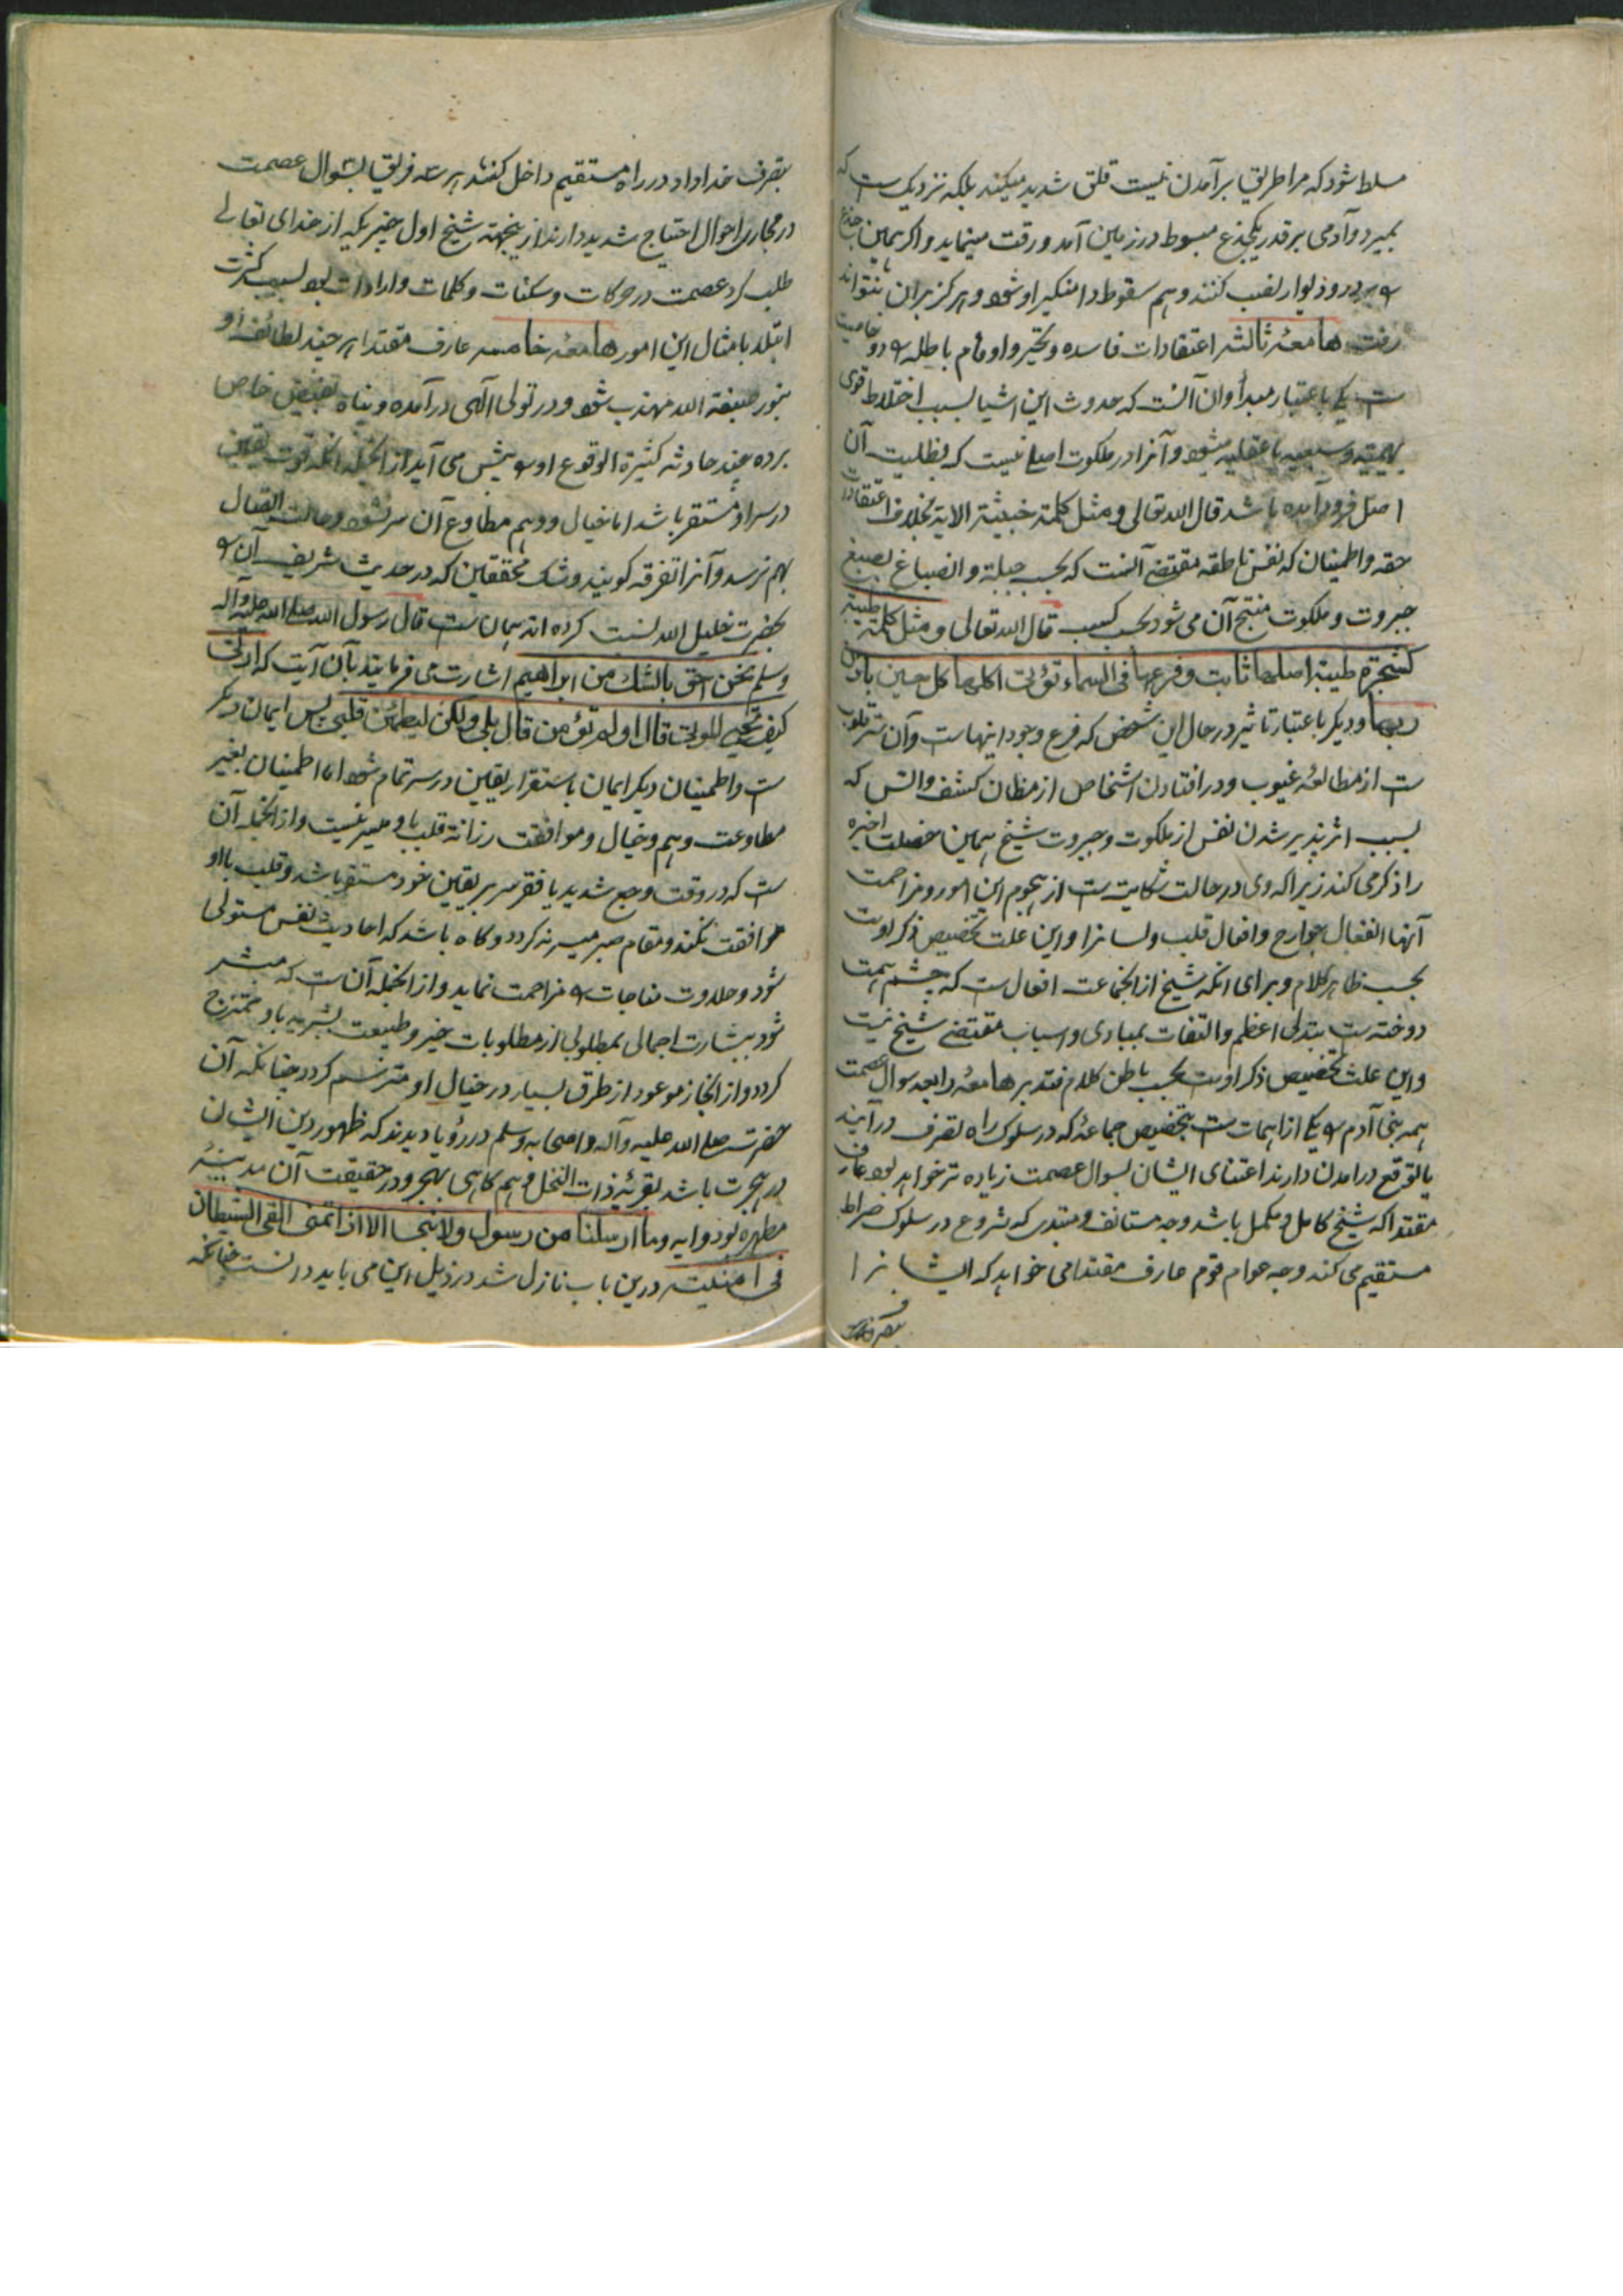 مسلط شود که مرا طریق برآمدن نیست قلق شدید میکند بلکه نزدیک ست که
بمیرد و آدمی بر قدر یکجذع مبسوط در زمین آمد و رفت مینماید و اگر همین جذع
را بر دو دیوار نصب کنند وهم سقوط دامنگیر او شود و هرگز بران نتواند
رفت هامعه ثالثه اعتقادات فاسده و تحیر و اوهام باطله را دو خاصیت
ست یکی باعتبار مبدأ و آن آنست که حدوث این اشیا بسبب اختلاط قوی
بهیمیه و سبعیه با عقلیه میشود و آنرا در ملکوت اصلی نیست که بظلیت آن
اصل فرود آمده باشد قال الله تعالی و مثل کلمة خبیثة الایة بخلاف اعتقادات
حقه و اطمینان که نفس ناطقه مقتضی آنست که بحسب جبلة و انصباغ بصبغ
جبروت و ملکوت منتج آن می شود بحسب کسب قال الله تعالی و مثل کلمة طیبة
کشجرة طیبة اصلها ثابت و فرعها فی السماء تؤتی اکلها کل حین باذن
ربها و دیگر باعتبار تاثیر در حال این شخص که فرع وجود اینهاست و آن ستر قلوب
ست از مطالعه غیوب و در افتادن اشخاص از مظان کشف و انس که
بسبب اثرپذیر شدن نفس از ملکوت و جبروت شیخ همین خصلت اخیره
را ذکر می کند زیرا که وی در حالت شکایت ست از هجوم این امور و مزاحمت
آنها افعال جوارح و افعال قلب و لسانرا و این علت تخصیص ذکر اوست
بحسب ظاهر کلام و برای آنکه شیخ از انجماعت افعال ست که چشم همت
دوخته ست بتدلی اعظم و التفات بمبادی و اسباب مقتضی شیخ نیست
و این علت تخصیص ذکر اوست بحسب باطن کلام فتدبر هامعه رابعه سوال عصمت
همه بنی آدم را یکی از اهمات ست بتخصیص جماعه که در سلوک راه تصرف درآیند
یا توقع درامدن دارند اعتنای ایشان بسوال عصمت زیاده تر خواهد بود عارف
مقتدا که شیخ کامل و مکمل باشد وجه مستانف و مبتدی که شروع در سلوک صراط
مستقیم می کند وجه عوام قوم عارف مقتدا می خواهد که ایشانرا
بتصرف خداداد در راه مستقیم داخل کنند هر سه فریق بسوال عصمت
در مجاری احوال احتیاج شدید دارند ازینجهة شیخ اول چیزیکه از خدای تعالی
طلب کرد عصمت در حرکات و سکنات و کلمات و ارادات بود بسبب کثرت
ابتلا بامثال این امور هامعه خامسه عارف مقتدا هر چند لطائف او
بنور صبغة الله مهذب شود و در تولی الهی درآمده و پناه بفیض خاص
برده چند حادثه کثیرة الوقوع او را پیش می آید از انجمله آنکه قوت یقین
در سر او مستقر باشد اما خیال و وهم مطاوع آن سر نشود و حالت اتصال
بهم نرسد و آنرا تفرقه گویند و شک محققین که در حدیث شریف آن را
بحضرت خلیل الله نسبت کرده اند همان ست قال رسول الله صلی الله علیه و آله
وسلم نحن احق بالشک من ابراهیم اشارت می فرمایند بآن آیت که ارنی
کیف تحیی الموتی قال اولم تؤمن قال بلی ولکن لیطمئن قلبی پس ایمان دیگر
ست و اطمینان دیگر ایمان باستقرار یقین در سر تمام شود اما اطمینان بغیر
مطاوعت وهم و خیال و موافقت رزانة قلب با او میسر نیست و از انجمله آن
ست که در وقت وجع شدید یا فقر سر بر یقین خود مستقر باشد و قلب با او
موافقت نکند و مقام صبر میسر نه گردد و گاه باشد که احادیث نفس مستولی
شود و حلاوت مناجات را مزاحمت نماید و از انجمله آن ست که مبشر
شود ببشارت اجمالی بمطلوبی از مطلوبات خیر و طبیعت بشریه با او ممتزج
گردد و از انجاز موعود از طرق بسیار در خیال او مترسم گردد چنانکه آن
حضرت صلی الله علیه و آله و اصحابه وسلم در رؤیا دیدند که ظهور دین ایشان
در هجرت باشد بقریه ذات النخل وهم گاهی بهجر و در حقیقت آن مدینه
مطهره بود و آیه وما ارسلنا من رسول ولا نبی الا اذا تمنی القی الشیطان
فی امنیته درین باب نازل شد در ذیل این می باید دانست چنانکه